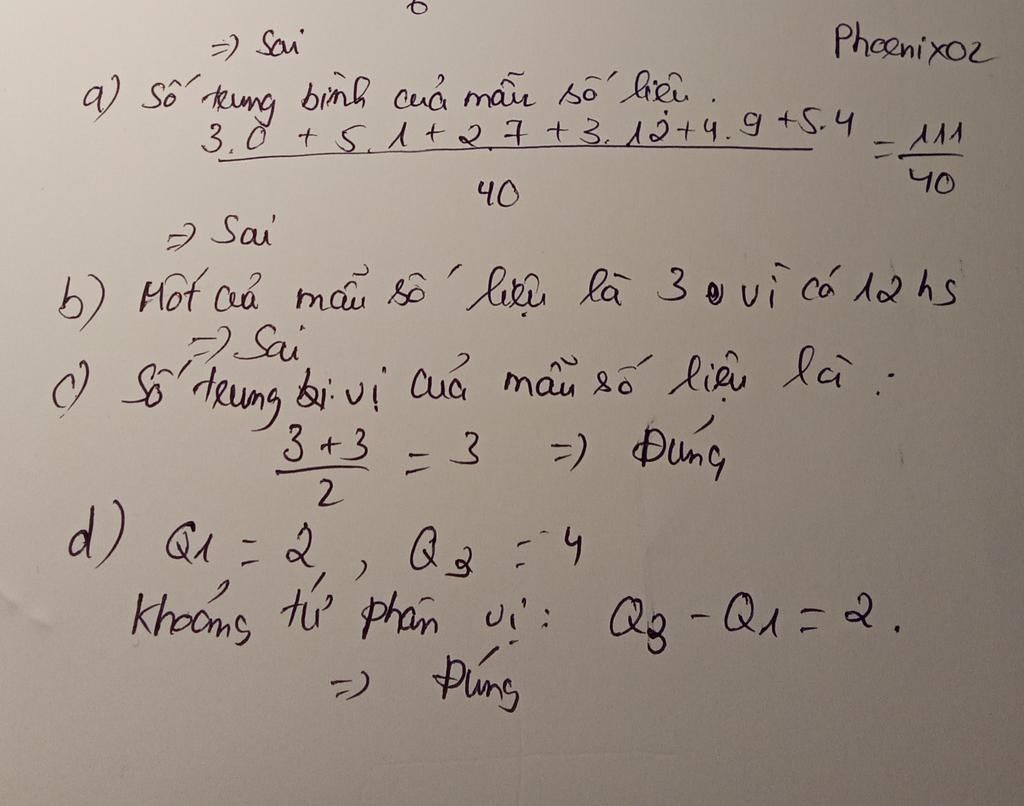 => Sai
Phoenix02
a) Số trung bình cuả mẫu số liệu.
3.0 + 5.1 + 2.7 + 3.12 + 4.9 + 5.4
40
= 111
40
=> Sai
b) Mốt cuả mẫu số liệu là 3 vì có 12 hs
=> Sai
c) Số trung vị cuả mẫu số liệu là :
3 + 3
2
= 3 => Đúng
d) Q1 = 2 , Q3 = 4
Khoảng tứ phân vị : Q3 - Q1 = 2.
=> Đúng